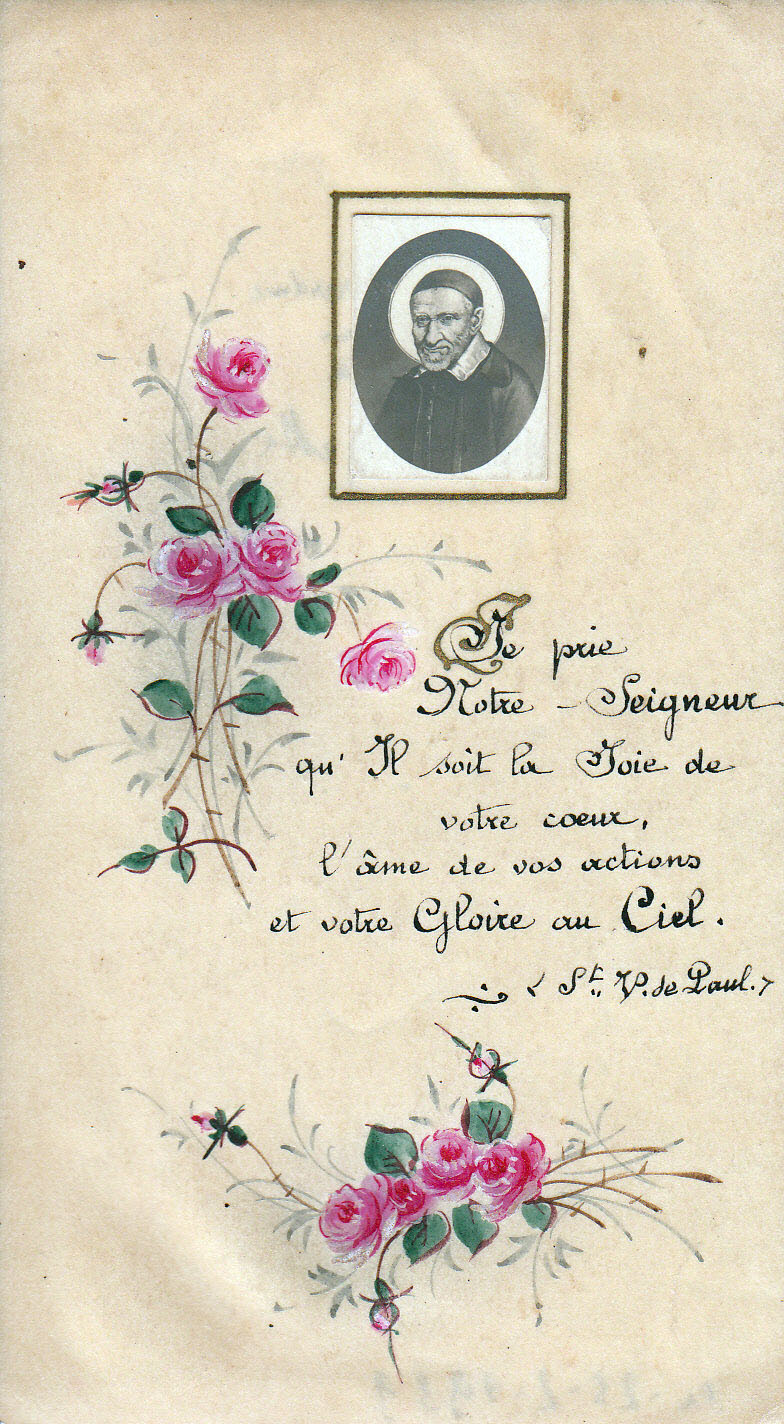 Je prie
Notre - Seigneur
qu' Il soit la Joie de
votre coeur,
l'âme de vos actions
et votre Gloire au Ciel.
< St V. de Paul. >